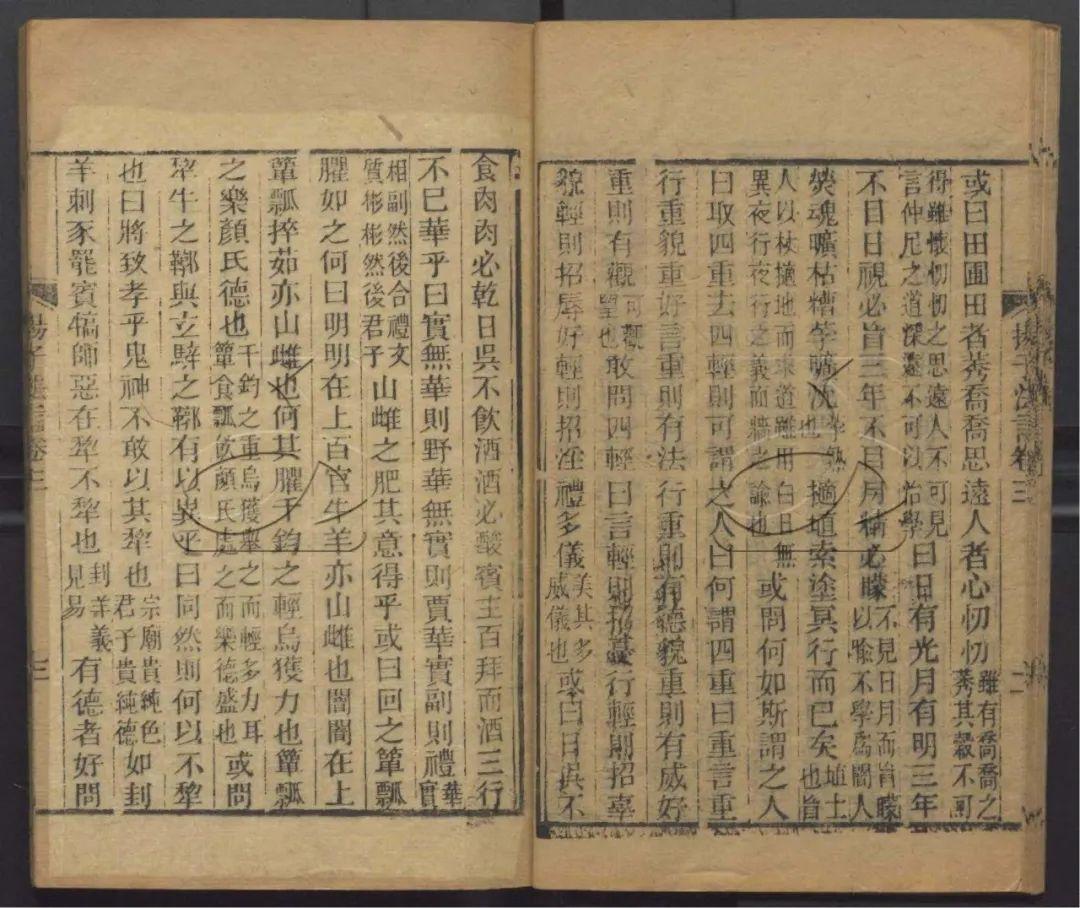 或曰田圃田者莠喬喬思遠人者心忉忉雖有喬喬之莠其穀不可
得雖懷忉忉之思遠人不可見言仲尼之道深遠不可以怠學曰日有光月有明三年
不目日視必盲三年不目月精必矇不見日月而盲矇以喻不學爲闇人
熒魂曠枯糟莩曠沈擿埴索塗冥行而已矣埴土也盲
人以杖擿地而求道雖用白日無異夜行夜行之義而牆之論也或問何如斯謂之人
曰取四重去四輕則可謂之人曰何謂四重曰重言重
行重貌重好言重則有法行重則有德貌重則有威好
重則有觀可觀望也敢問四輕曰言輕則招憂行輕則招辜
貌輕則招辱好輕則招淫禮多儀美其多威儀也或曰日昃不
揚子法言卷三
二
食肉肉必乾日昃不飲酒酒必酸賓主百拜而酒三行
不已華乎曰實無華則野華無實則賈華實副則禮華實
相副然後合禮文質彬彬然後君子山雌之肥其意得乎或曰回之簞瓢
臞如之何曰明明在上百官牛羊亦山雌也闇闇在上
簞瓢捽茹亦山雌也何其臞千鈞之輕烏獲力也簞瓢
之樂顏氏德也千鈞之重烏獲舉之而輕多力耳簞食瓢飲顏氏處之而樂德盛也或問
犂牛之鞹與玄騂之鞹有以異乎曰同然則何以不犂
也曰將致孝乎鬼神不敢以其犂也宗廟貴純色君子貴純德如刲
羊刺豕罷賓犒師惡在犂不犂也刲羊義見易有德者好問
揚子法言卷三
三